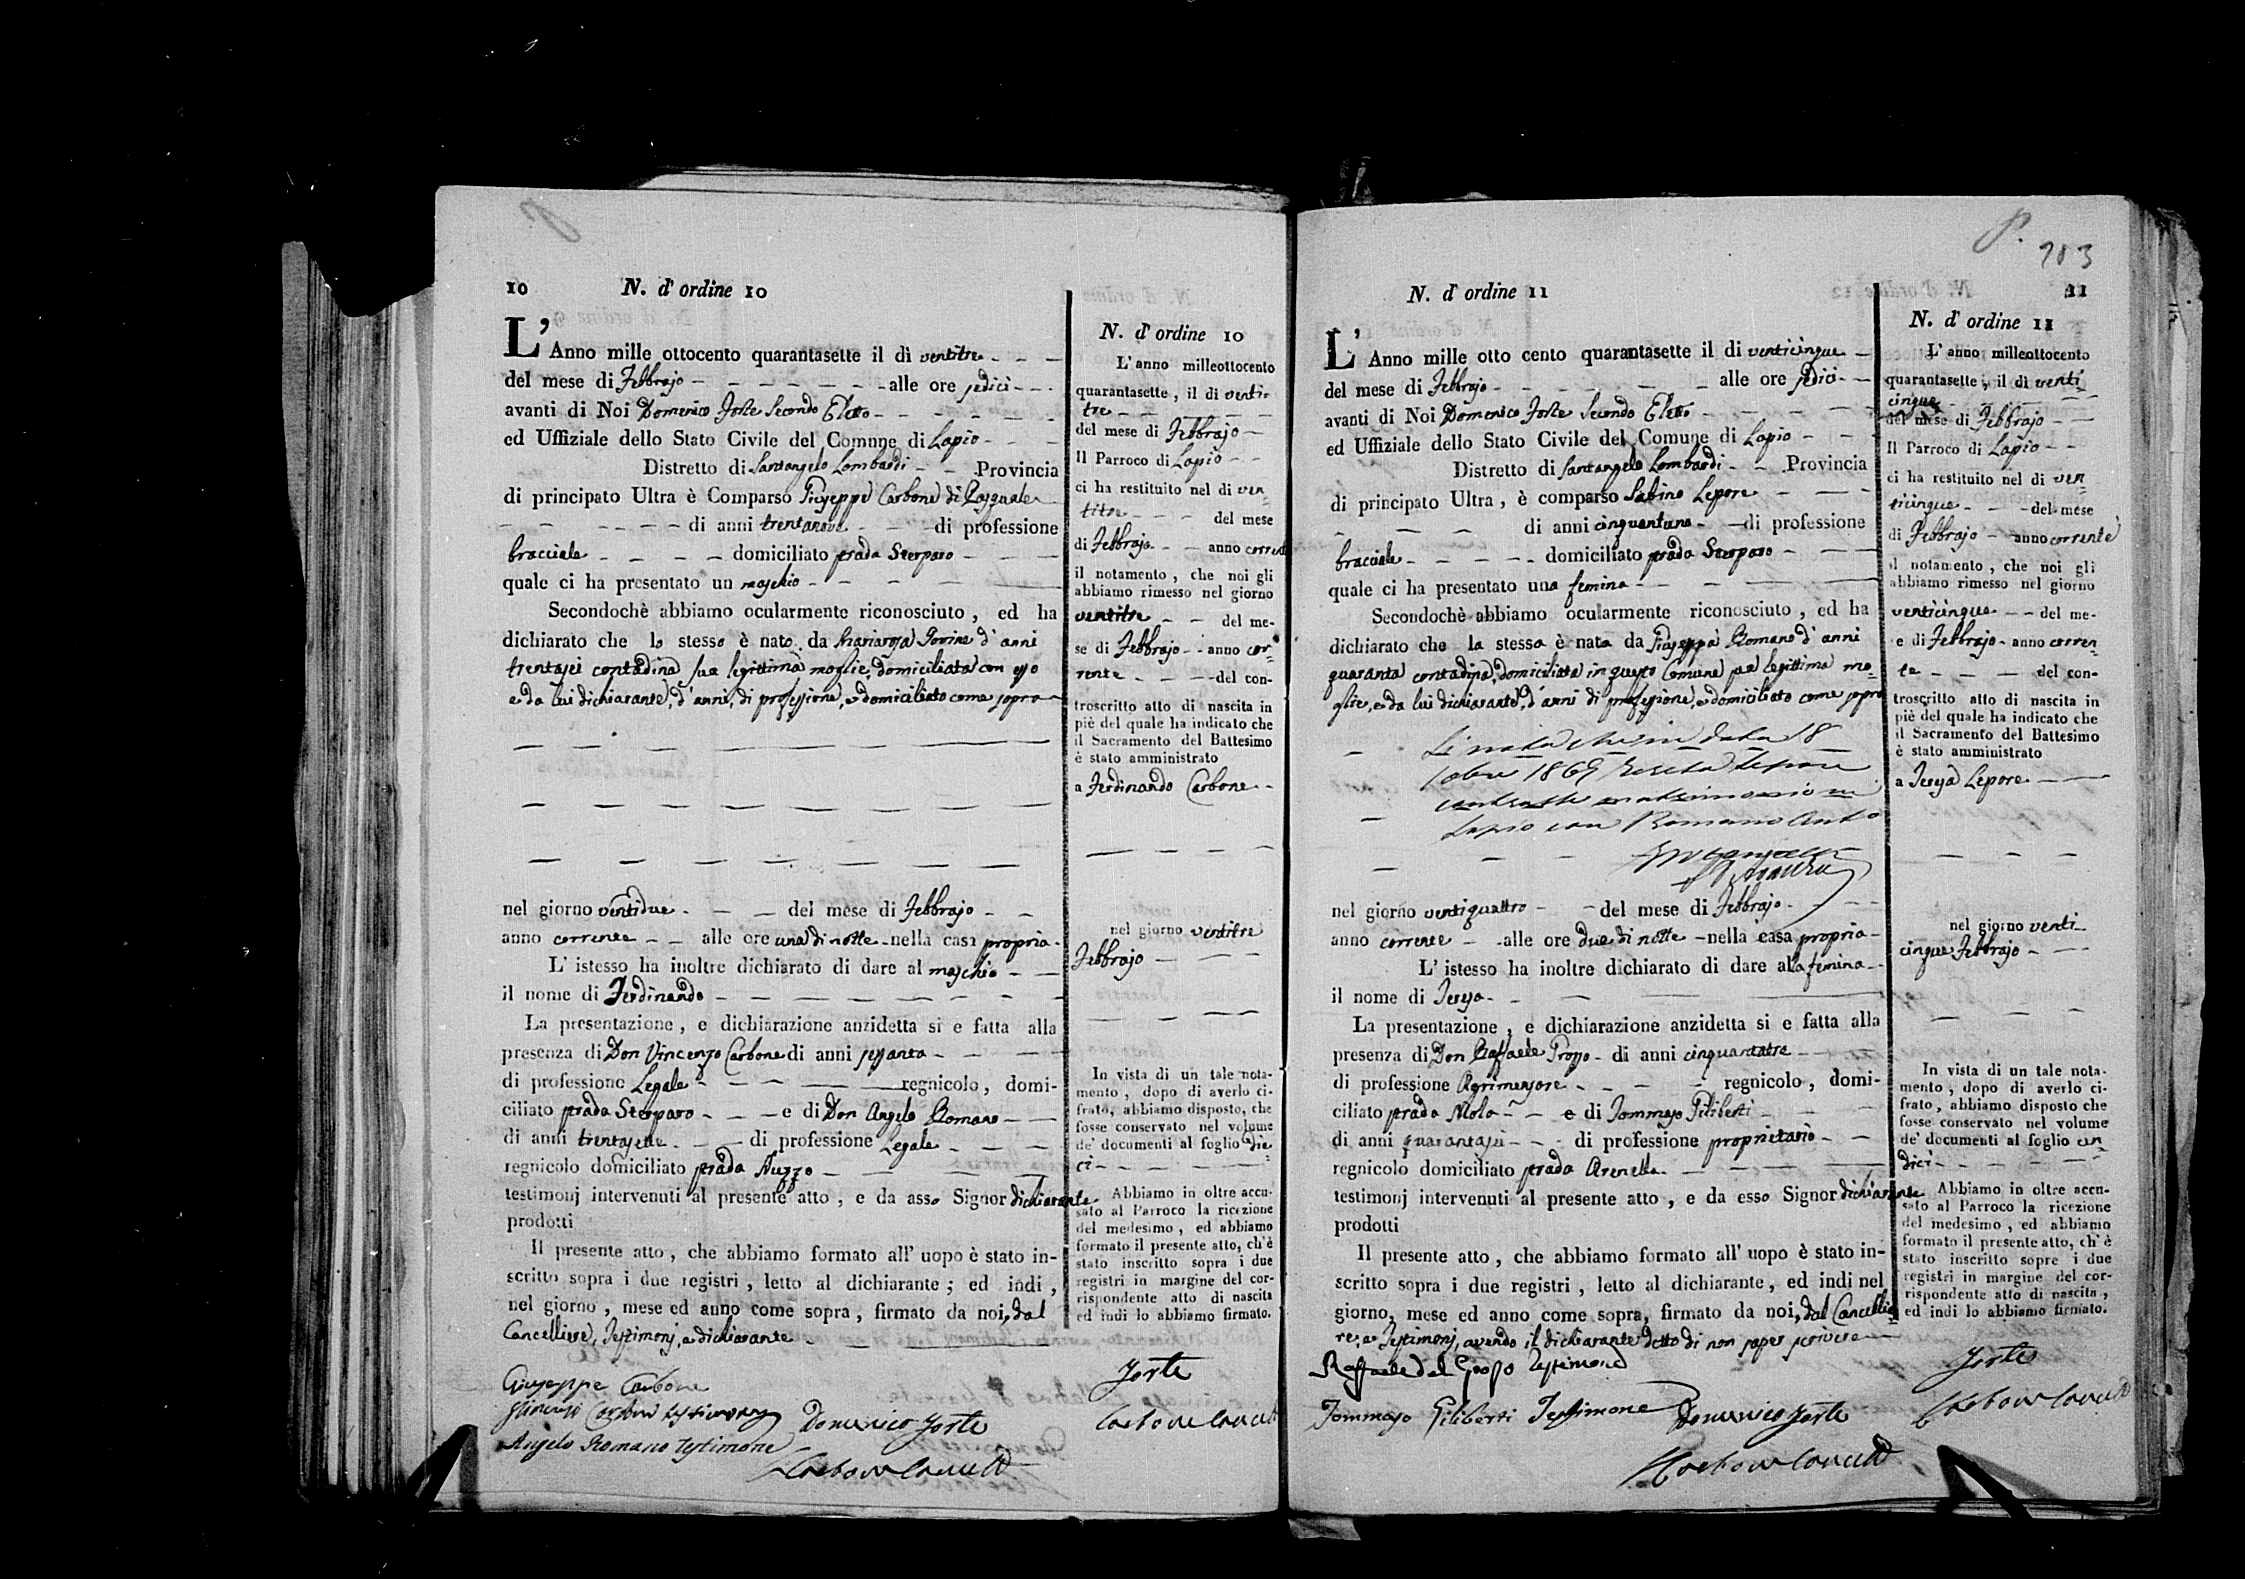 10 N. d' ordine 10
L' Anno mille ottocento quarantasette il dì ventitre
del mese di Febbrajo alle ore sedici
avanti di Noi Domenico Forte Secondo Eletto
ed Uffiziale dello Stato Civile del Comune di Lapio
Distretto di Santangelo Lombardi Provincia
di principato Ultra è Comparso Giuseppe Carbone di Pasquale
di anni trentanove di professione
bracciale domiciliato strada Sterparo
quale ci ha presentato un maschio
Secondochè abbiamo ocularmente riconosciuto, ed ha
dichiarato che lo stesso è nato da Mariarosa d'anni
trentasei contadina sua legittima moglie, domiciliata con esso
e da lui dichiarante, d'anni, di professione, e domiciliato come sopra
nel giorno ventidue del mese di Febbrajo
anno corrente alle ore una di notte nella casa propria
L' istesso ha inoltre dichiarato di dare al maschio
il nome di Ferdinando
La presentazione, e dichiarazione anzidetta si e fatta alla
presenza di Don Vincenzo Carbone di anni sessanta
di professione Legale regnicolo, domi-
ciliato strada Sterparo e di Don Angelo Romano
di anni trentasette di professione Legale
regnicolo domiciliato strada Nuzzo
testimonj intervenuti al presente atto, e da asso Signor dichiarante
prodotti
Il presente atto, che abbiamo formato all' uopo è stato in-
scritto sopra i due registri, letto al dichiarante; ed indi,
nel giorno, mese ed anno come sopra, firmato da noi, dal
Cancelliere, Testimonj, e dichiarante
Giuseppe Carbone
Vincenzo Carbone testimone
Angelo Romano testimone
Domenico Forte
Carbone
N. d' ordine 10
L' anno milleottocento
quarantasette, il di venti-
tre
del mese di Febbrajo
Il Parroco di Lapio
ci ha restituito nel di ven-
titre del mese
di Febbrajo anno corrente
il notamento, che noi gli
abbiamo rimesso nel giorno
ventitre del me-
se di Febbrajo anno cor-
rente del con-
troscritto atto di nascita in
piè del quale ha indicato che
il Sacramento del Battesimo
è stato amministrato
a Ferdinando Carbone
nel giorno ventitre
Febbrajo
In vista di un tale nota-
mento, dopo di averlo ci-
frato, abbiamo disposto, che
fosse conservato nel volume
de' documenti al foglio die-
ci
Abbiamo in oltre accu-
sato al Parroco la ricezione
del medesimo, ed abbiamo
formato il presente atto, ch'è
stato inscritto sopra i due
registri in margine del cor-
rispondente atto di nascita
ed indi lo abbiamo firmato.
Forte
Carbone
P. 213
N. d' ordine 11 11
L' Anno mille otto cento quarantasette il di venticinque
del mese di Febbrajo alle ore sedici
avanti di Noi Domenico Forte Secondo Eletto
ed Uffiziale dello Stato Civile del Comune di Lapio
Distretto di Santangelo Lombardi Provincia
di principato Ultra, è comparso Sabino Lepore
di anni cinquantuno di professione
bracciale domiciliato strada Sterparo
quale ci ha presentato una femina
Secondochè abbiamo ocularmente riconosciuto, ed ha
dichiarato che la stessa è nata da Giuseppa Romano d'anni
quaranta contadina, domiciliata in questo Comune sua legittima mo-
glie, e da lui dichiarante, d'anni di professione, e domiciliato come sopra
Si nota che in data 18
1869 Lepore
contratto matrimonio in
Lapio con Romano Anto
nel giorno ventiquattro del mese di Febbrajo
anno corrente alle ore due di notte nella casa propria
L' istesso ha inoltre dichiarato di dare alla femina
il nome di Teresa
La presentazione, e dichiarazione anzidetta si e fatta alla
presenza di Don Raffaele di anni cinquantatre
di professione Agrimensore regnicolo, domi-
ciliato strada Molo e di Tommaso Giliberti
di anni quarantasei di professione proprietario
regnicolo domiciliato strada Arenella
testimonj intervenuti al presente atto, e da esso Signor dichiarante
prodotti
Il presente atto, che abbiamo formato all' uopo è stato in-
scritto sopra i due registri, letto al dichiarante, ed indi nel
giorno, mese ed anno come sopra, firmato da noi, dal Cancellie-
re, e Testimonj, avendo il dichiarante detto di non saper scrivere
Raffaele del Testimone
Tommaso Giliberti Testimone
Domenico Forte
Carbone
N. d' ordine 11
L' anno milleottocento
quarantasette, il di venti-
cinque
del mese di Febbrajo
Il Parroco di Lapio
ci ha restituito nel di ven-
ticinque del mese
di Febbrajo anno corrente
il notamento, che noi gli
abbiamo rimesso nel giorno
venticinque del me-
e di Febbrajo anno corren-
te del con-
troscritto atto di nascita in
piè del quale ha indicato che
il Sacramento del Battesimo
è stato amministrato
a Teresa Lepore
nel giorno venti-
cinque Febbrajo
In vista di un tale nota-
mento, dopo di averlo ci-
frato, abbiamo disposto che
fosse conservato nel volume
de' documenti al foglio un-
dici
Abbiamo in oltre accu-
sato al Parroco la ricezione
del medesimo, ed abbiamo
formato il presente atto, ch' è
stato inscritto sopre i due
registri in margine del cor-
rispondente atto di nascita,
ed indi lo abbiamo firmato.
Forte
Carbone